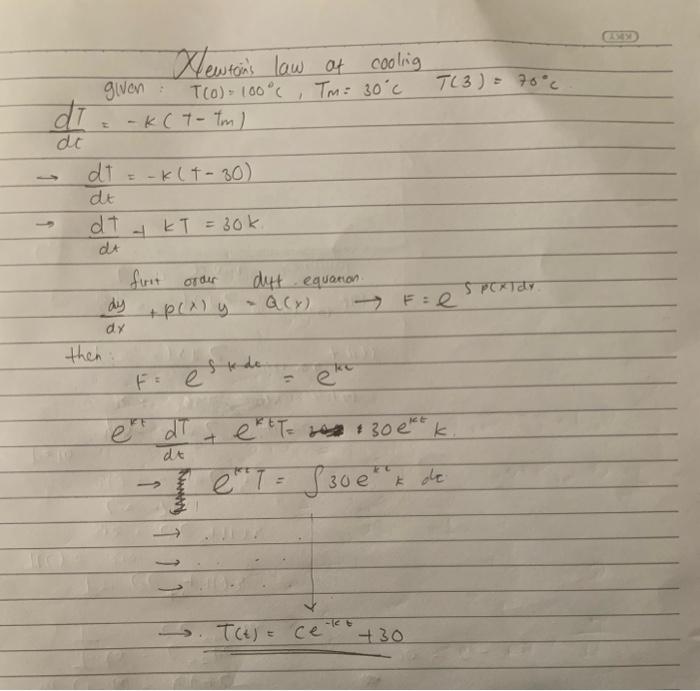 KKY
Newton's law of cooling
given : T(0) = 100°C , Tm = 30°C T(3) = 70°C
dT/dt = -k(T - Tm)
→ dT/dt = -k(T - 30)
→ dT/dt + kT = 30k.
first order diff. equation.
dy/dx + p(x) y = Q(x) → F = e^∫p(x)dx.
then :
F = e^∫k dt = e^kt
e^kt dT/dt + e^kt T = 30e^kt k.
→ e^kt T = ∫30e^kt k dt
→ . . . . .
→ . . . .
→ . . . .
→. T(t) = Ce^-kt + 30